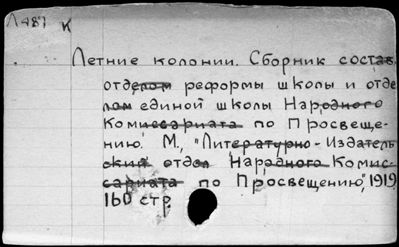 Л487 К
Летние колонии. Сборник состав.
отделом реформы школы и отде
лом единой школы Народного
Комиссариата по Просвеще-
нию. М., "Литературно-Издатель
ский отдел Народного Комис-
сариата по Просвещению", 1919
160 стр.